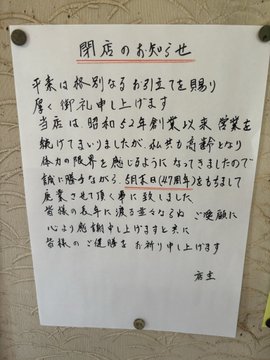 閉店のお知らせ
平素は格別なるお引立てを賜り
厚く御礼申し上げます
当店は、昭和52年創業以来営業を
続けてまいりましたが、私共も高齢となり
体力の限界を感じるようになってきましたので
誠に勝手ながら、5月末日(47周年)をもちまして
廃業させて頂く事に致しました
皆様の長年に渡る並々ならぬ ご愛顧に
心より感謝申し上げますと共に
皆様の ご健勝を お祈り申し上げます
店主